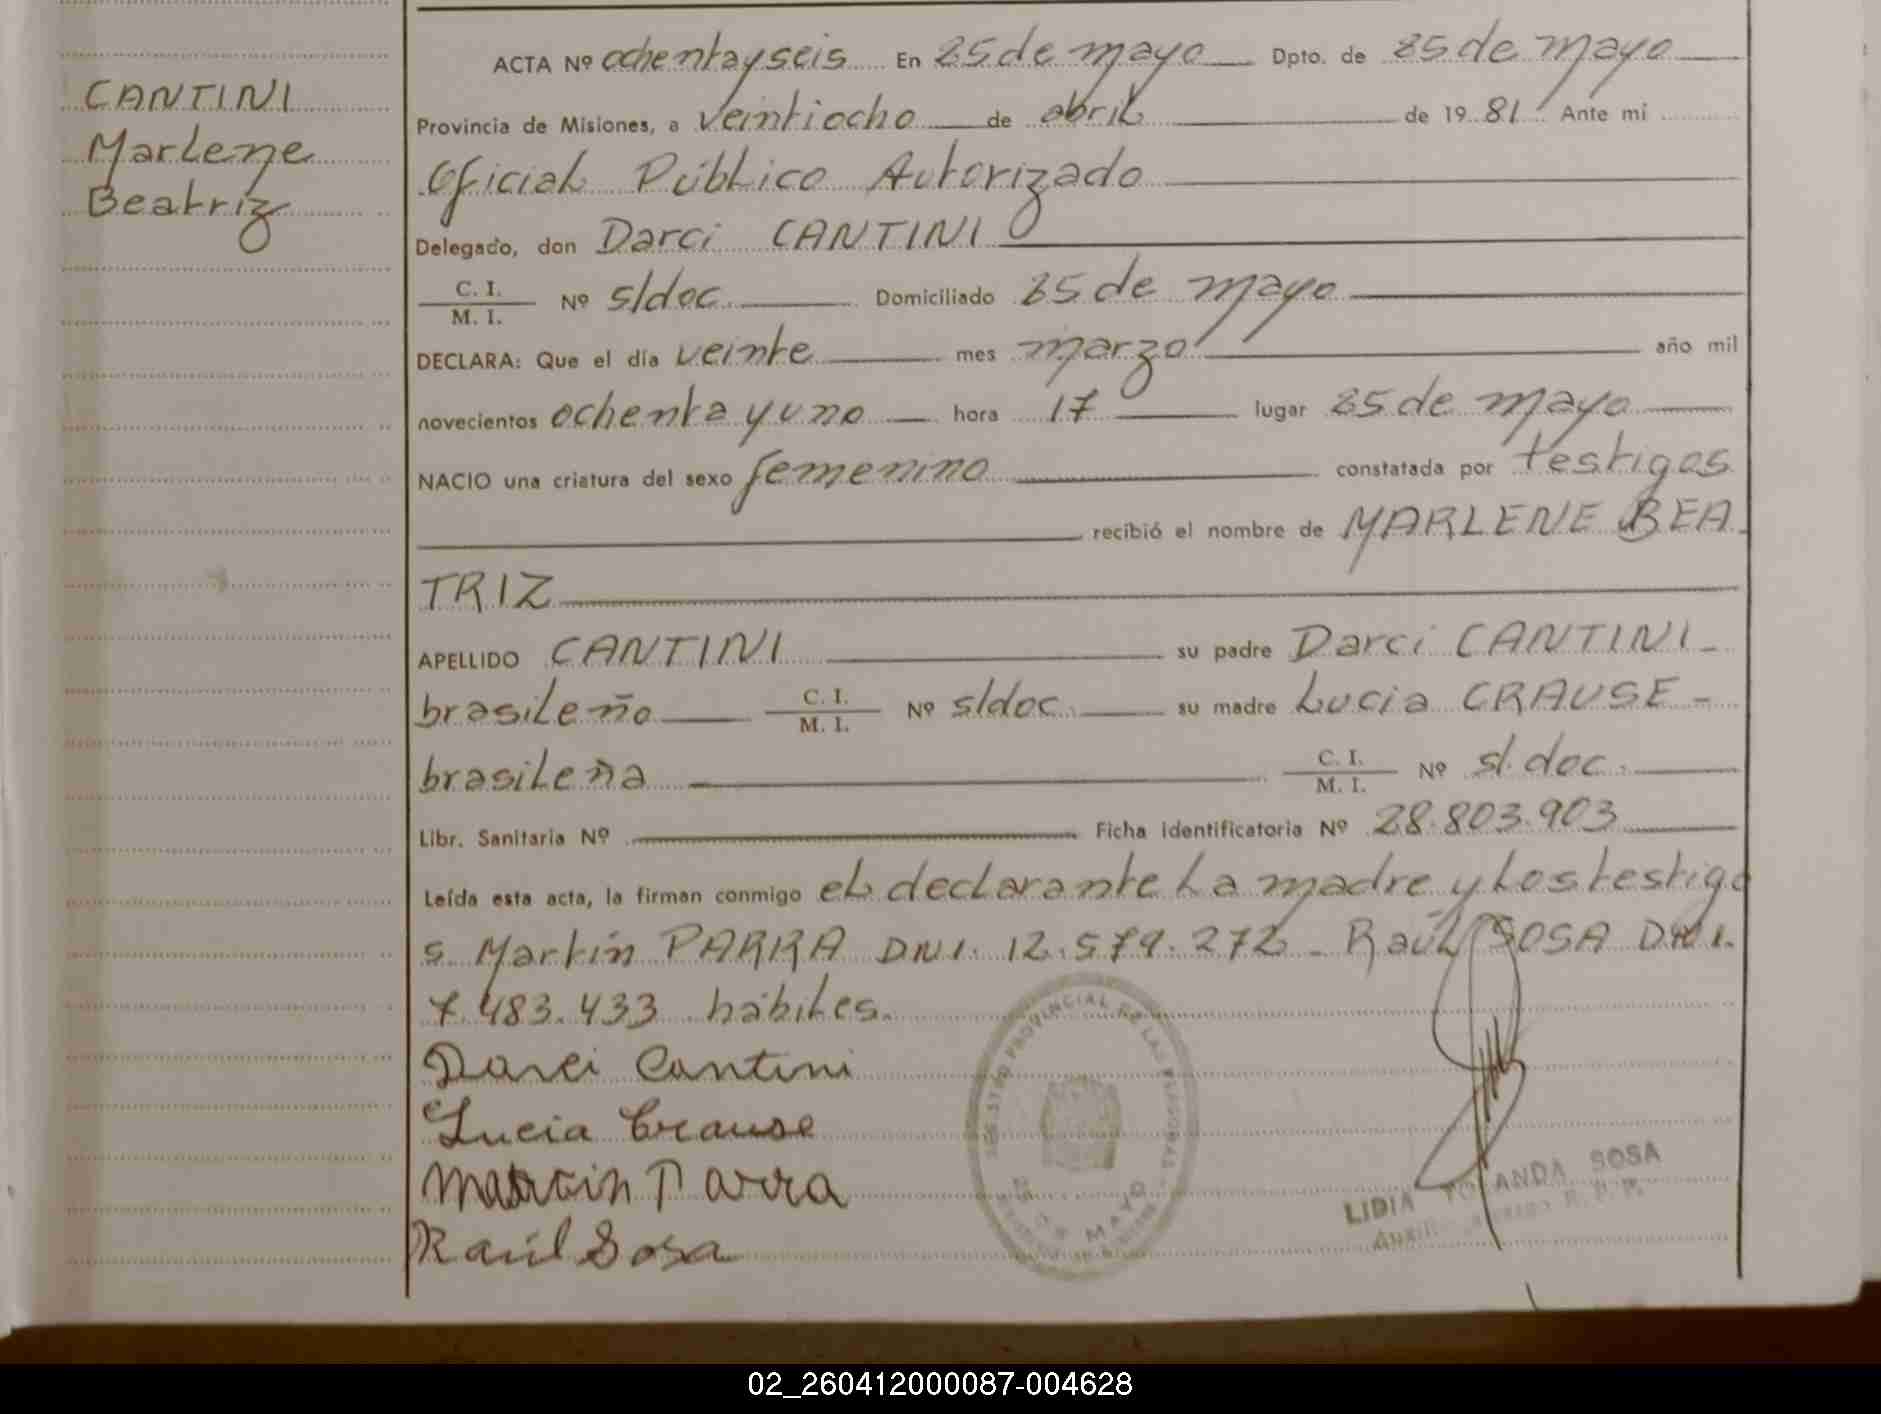 CANTINI
Marlene
Beatriz
ACTA Nº ochentayseis En 25 de mayo Dpto. de 25 de mayo
Provincia de Misiones, a veintiocho de abril de 19 81 Ante mí
Oficial Público Autorizado
Delegado, don Darci CANTINI
C. I.
M. I. Nº s/doc. Domiciliado 25 de mayo
DECLARA: Que el día veinte mes marzo año mil
novecientos ochenta y uno hora 17 lugar 25 de mayo
NACIO una criatura del sexo femenino constatada por testigos
recibió el nombre de MARLENE BEA
TRIZ
APELLIDO CANTINI su padre Darci CANTINI
brasileño C. I. M. I. Nº s/doc. su madre Lucia CRAUSE
brasileña C. I. M. I. Nº s/doc.
Libr. Sanitaria Nº Ficha identificatoria Nº 28.803.903
Leída esta acta, la firman conmigo el declarante la madre y los testigo
s Martín PARRA DNI. 12.579.272 - Raúl SOSA DNI.
7.483.433 hábiles.
Darci Cantini
Lucia Crause
Martin Parra
Raúl Sosa
REGISTRO PROVINCIAL DE LAS PERSONAS
25 DE MAYO
LIDIA YOLANDA SOSA
02_260412000087-004628